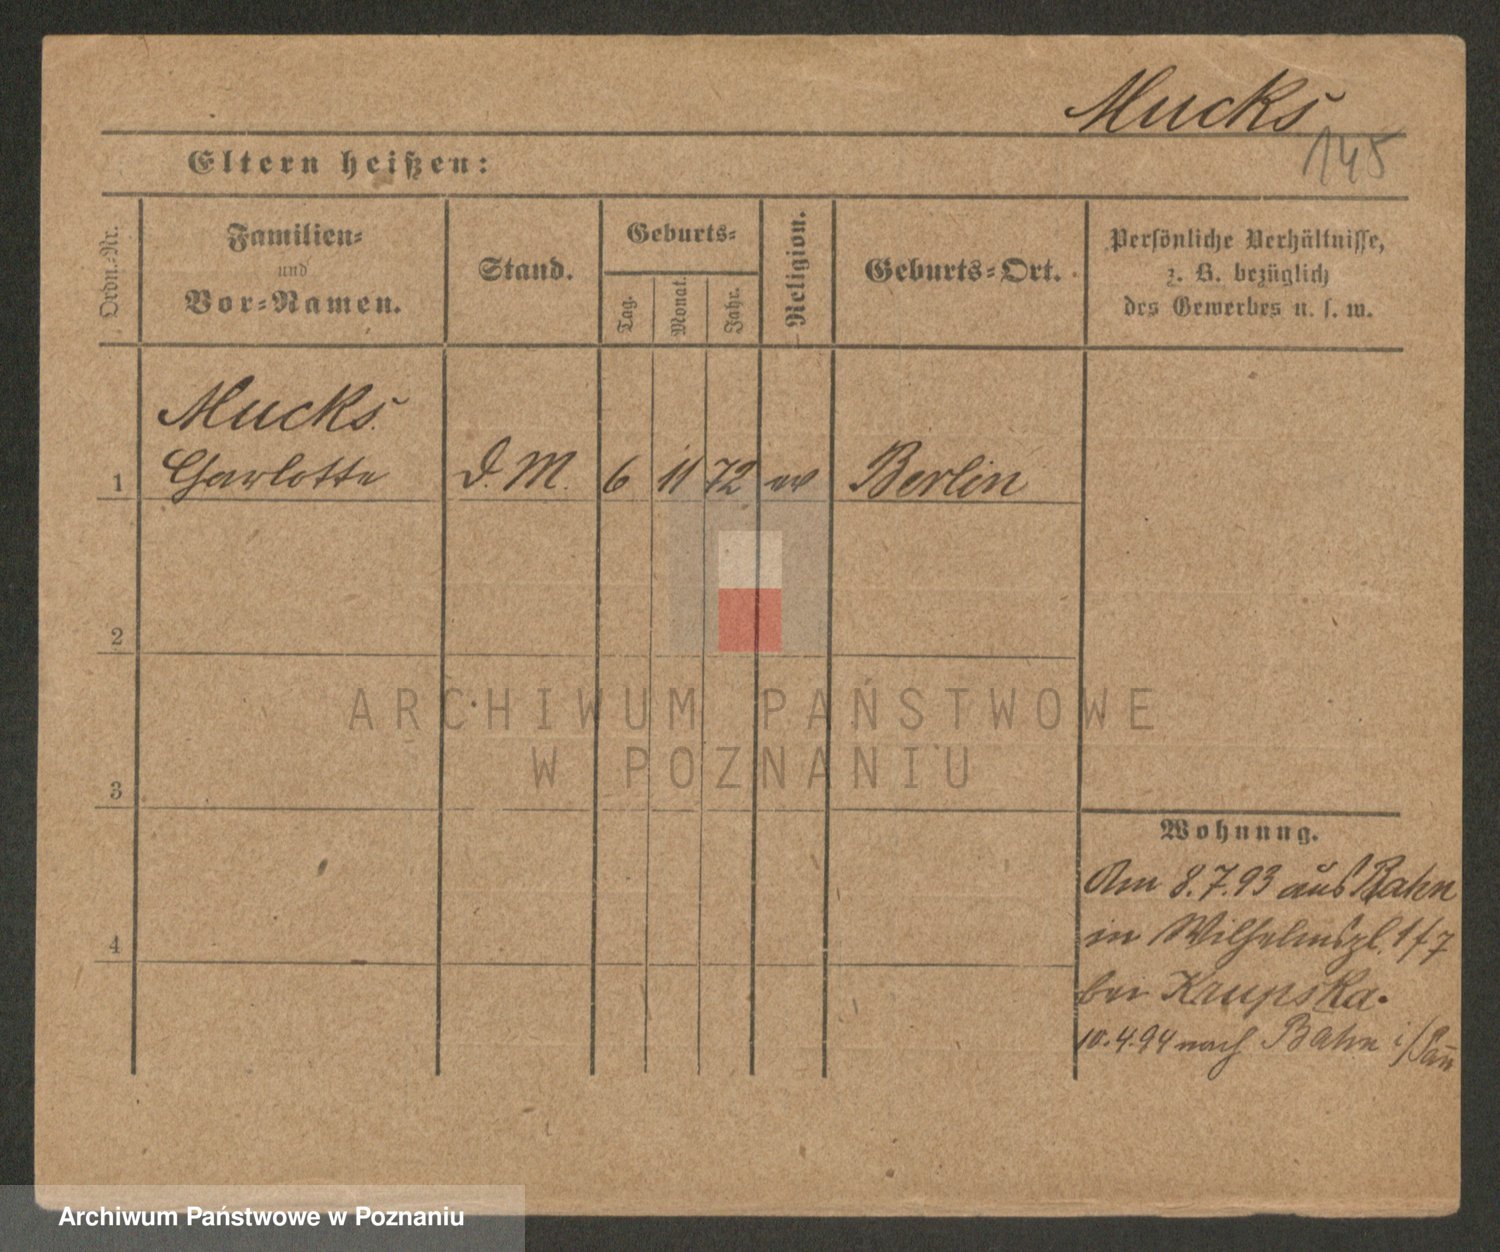 Mucks
145
Eltern heißen:
Ordn.-Nr.
Familien-
und
Vor-Namen.
Stand.
Geburts-
Tag.
Monat.
Jahr.
Religion.
Geburts-Ort.
Persönliche Verhältnisse,
z. B. bezüglich
des Gewerbes u. s. w.
Mucks.
1 Charlotte D. M. 6 11 72 ev Berlin
2
3
4
Wohnung.
Am 8.7.93 aus Bahn
in Wilhelmspl. 1 f 7
bei Krupska.
10.4.94 nach Bahn i/
ARCHIWUM PAŃSTWOWE
W POZNANIU
Archiwum Państwowe w Poznaniu